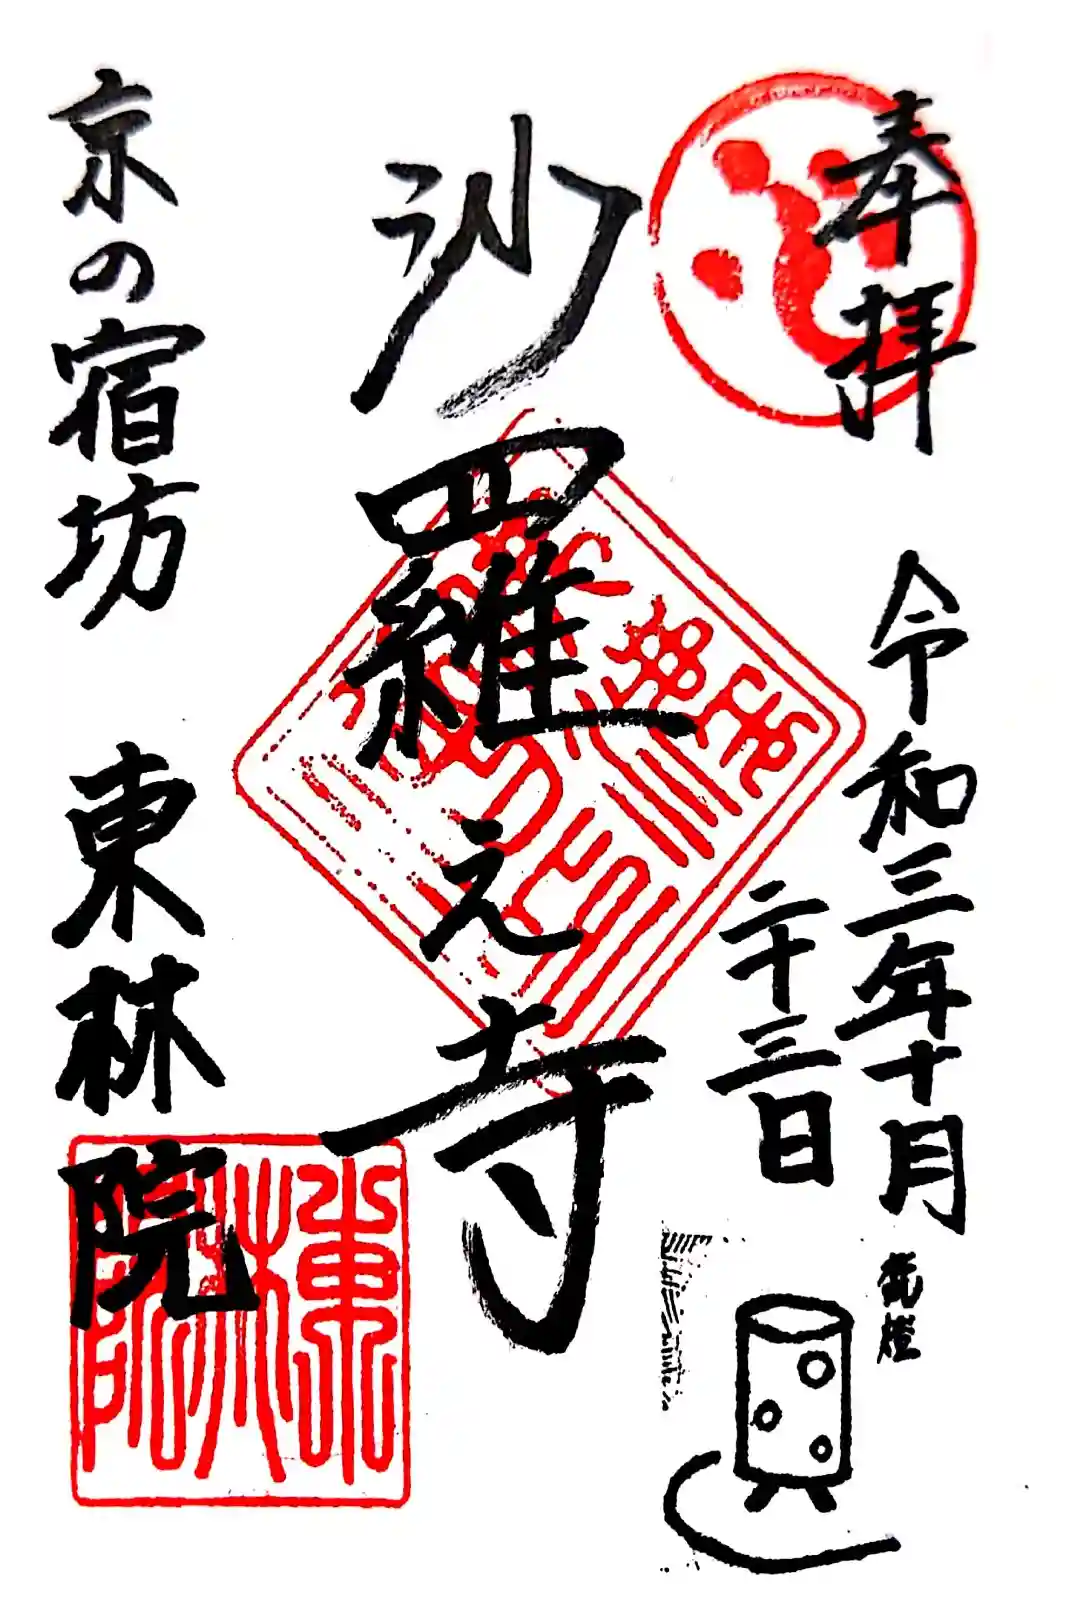 奉拝
令和三年十月
二十三日
沙羅之寺
京の宿坊 東林院